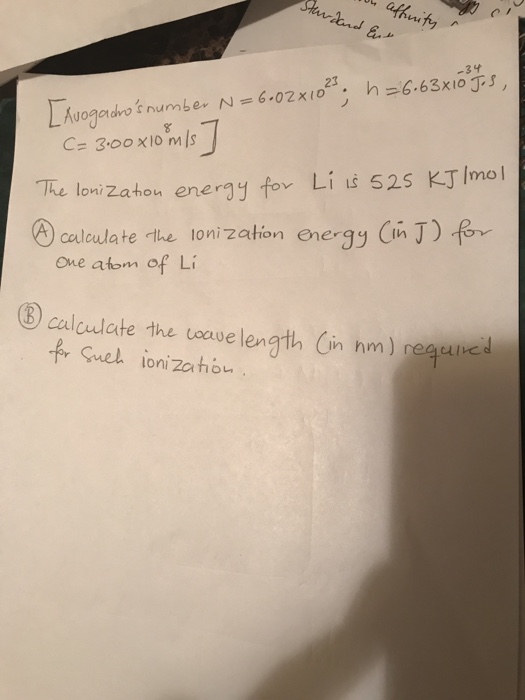 Standard affinity
[Avogadro's number N = 6.02x10²³; h = 6.63x10⁻³⁴ J.s,
C = 3.00x10⁸ m/s]
The Ionization energy for Li is 525 KJ/mol
(A) calculate the Ionization energy (in J) for
one atom of Li
(B) calculate the wavelength (in nm) required
for such ionization.